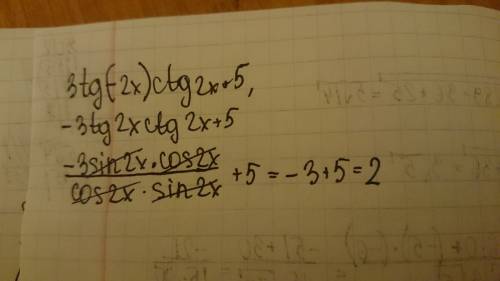 3tg(-2x)ctg2x+5,
-3tg2xctg2x+5
-3sin2x·cos2x/cos2x·sin2x +5=-3+5=2